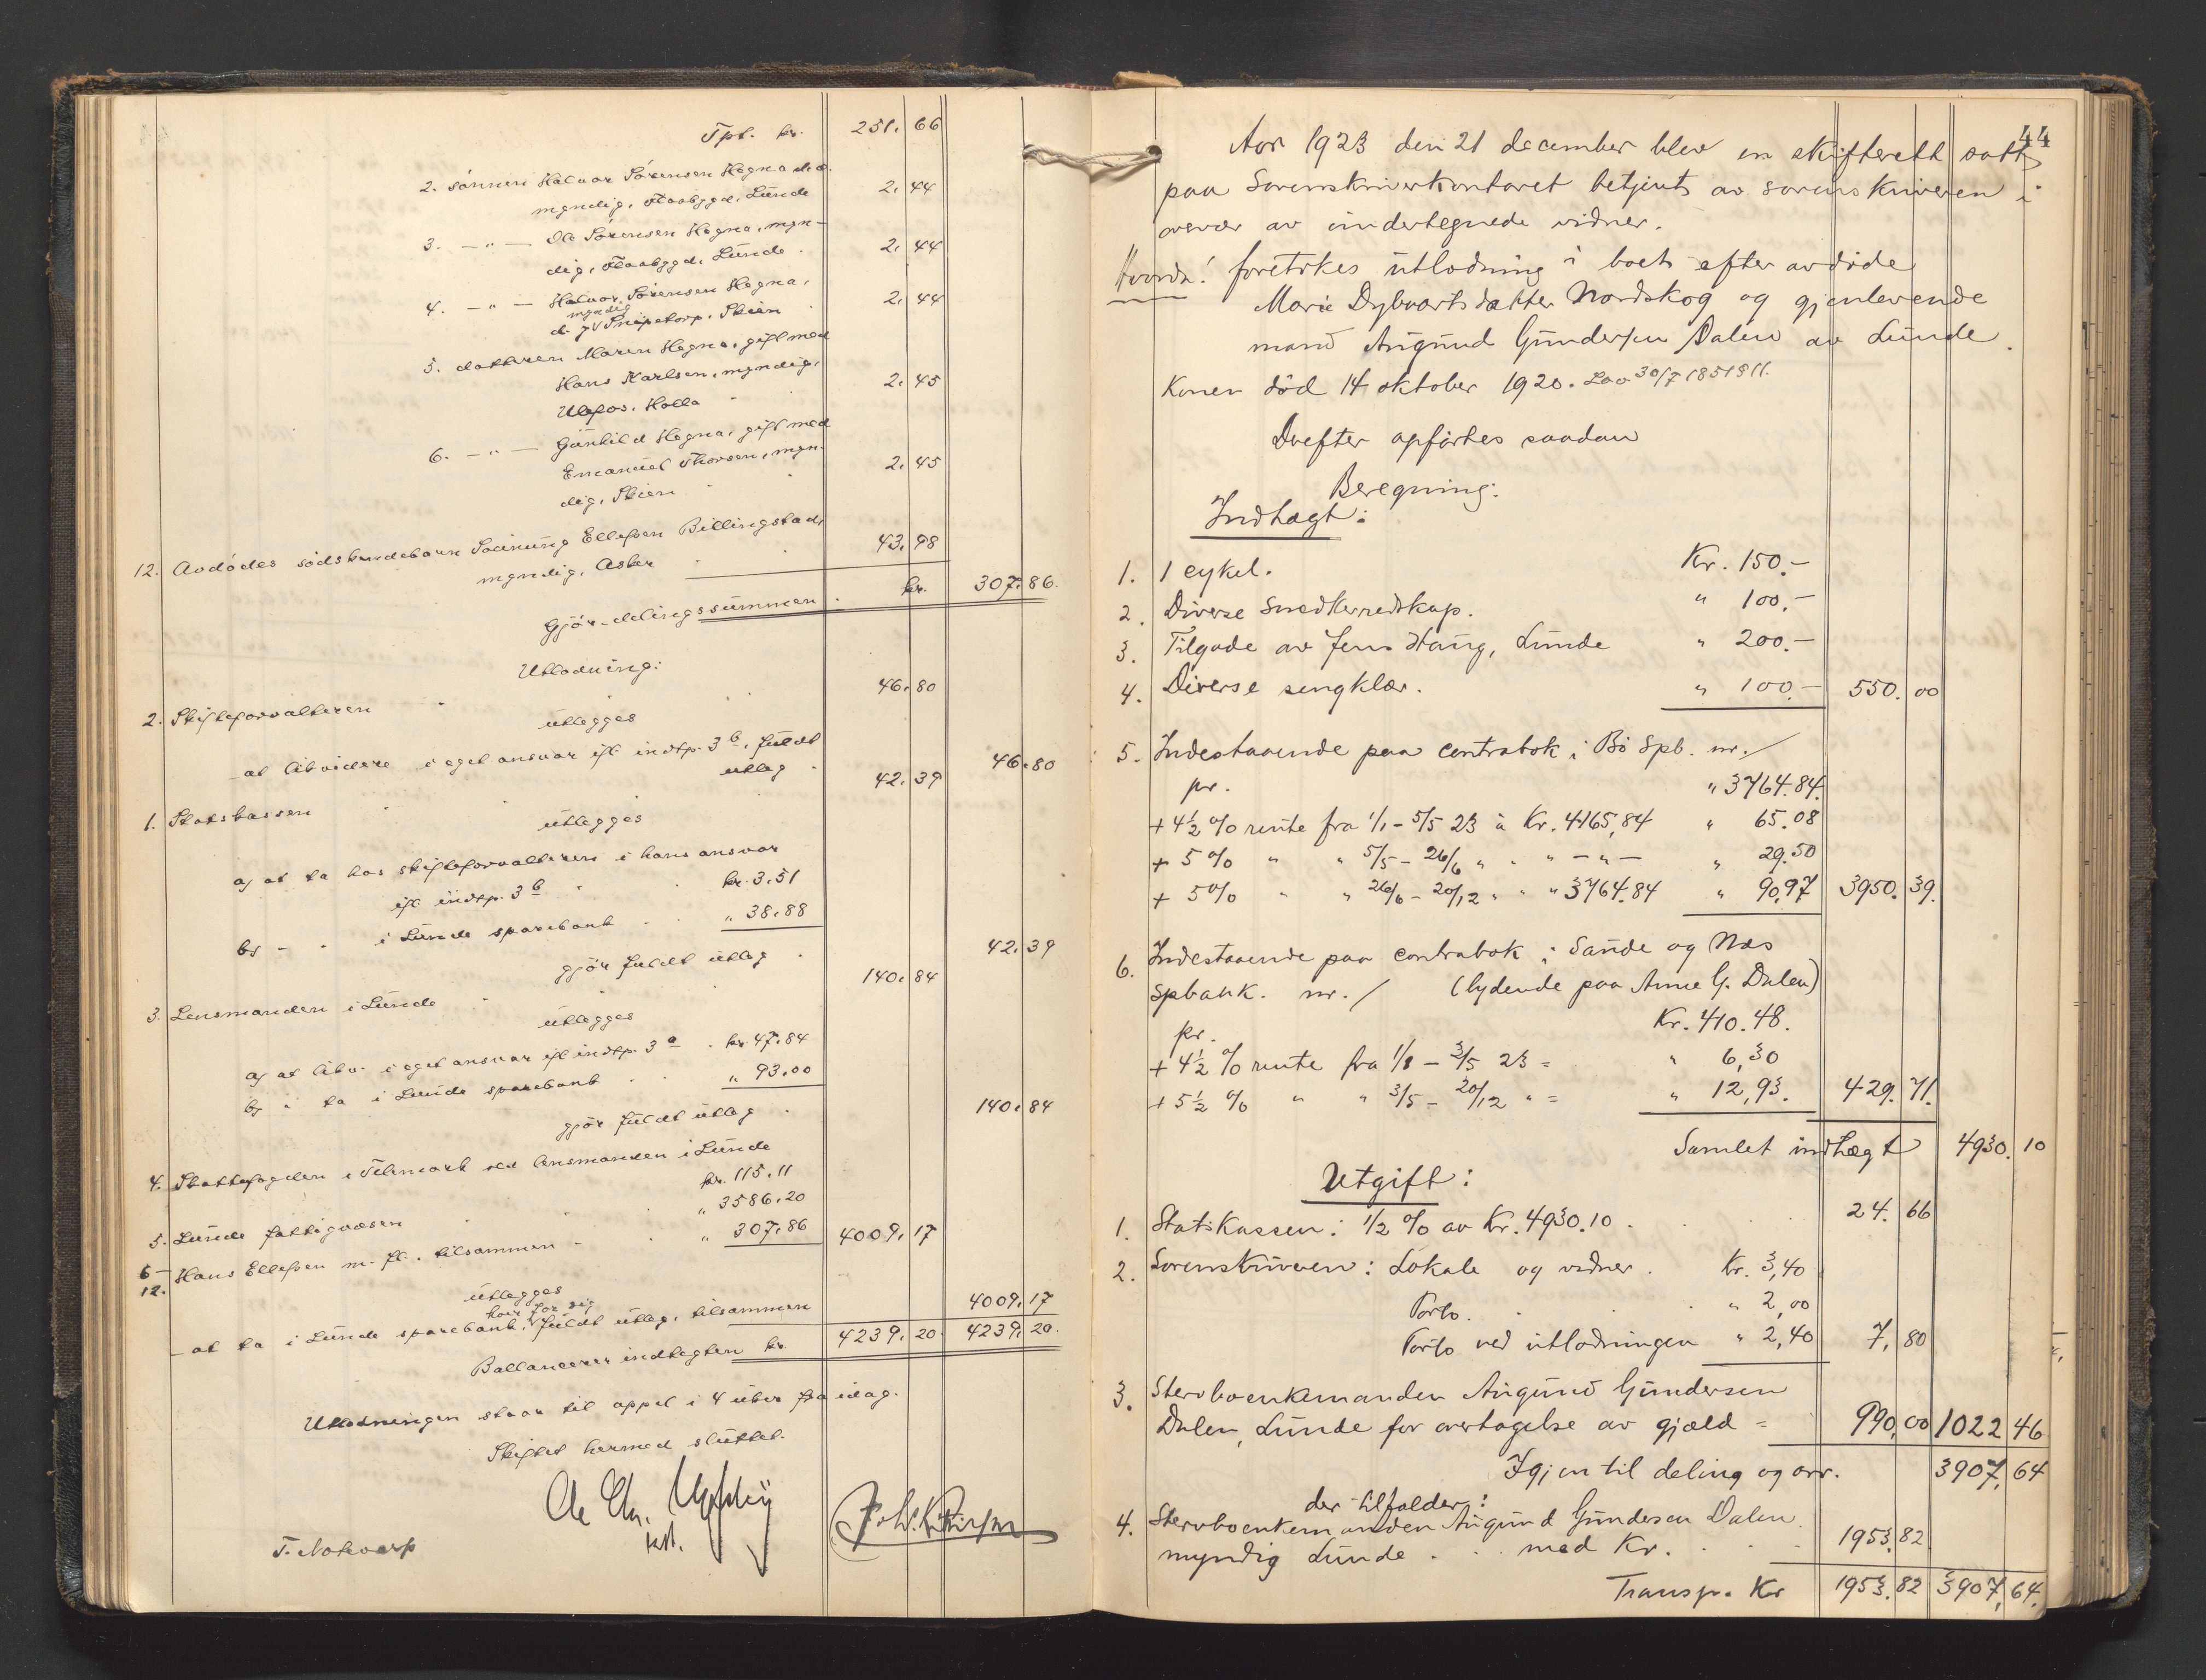 Tpt. kr. 251. 66
2. sønnen Halvor Sørensen Hegna d.æ.
myndig, Flaabygd, Lunde 2. 44
3. — " — Ole Sørensen Hegna, myn-
dig, Flaabygd, Lunde . 2. 44
4. — " — Halvor Sørensen Hegna,
myndig
d. y. Snipetorp. Skien . 2. 44
5. datteren Maren Hegna, gift med
Hans Karlsen, myndig,
Ulefos. Holla . 2. 45
6. — " — Gunhild Hegna, gift med
Emanuel Thorsen, myn-
dig, Skien . . 2. 45
12. Avdødes sødskendebarn Ellefsen Billingstad,
myndig, Asker . . 43. 98
Gjør delingssummen . kr. 307. 86.
Utlodning:
2. Skifteforvalteren . . . 46. 80
utlegges
at likvidere i eget ansvar ifl. indtp. 3 b. fuldt
utleg . 46. 80
1. Statskassen . . 42. 39
utlegges
a) at ta hos skifteforvalteren i hans ansvar
ifl. indtp. 3 b . . kr. 3.51
b) - " i Lunde sparebank . . " 38.88
gjør fuldt utleg . 42. 39
3. Lensmanden i Lunde . . 140. 84
utlegges
a) at likv. i eget ansvar ifl. indtp. 3 a . kr. 47.84
b) " ta i Lunde sparebank . . " 93.00
gjør fuldt utleg . 140. 84
4. Skattefogden i Telemark ved lensmanden i Lunde
kr. 115.11
5. Lunde fattigvæsen . . . " 3586.20
6 — Hans Ellefsen m. fl. tilsammen . . " 307.86 4009. 17
12.
utlegges
hver for sig
- at ta i Lunde sparebank, fuldt utleg, tilsammen 4009. 17
Ballancerer indtegten kr. 4239. 20. 4239. 20.
Utlodningen staar til appel i 4 uker fra idag.
Skiftet hermed sluttet.
44
Aar 1923 den 21 december blev en skifterett satt
paa Sorenskriverkontoret betjent av sorenskriveren i
overvær av undertegnede vidner.
Hvorda! foretokes utlodning i boet efter avdøde
Marie Dybvartsdatter Nordskog og gjenlevende
mand Augund Gundersen Dalen av Lunde.
Konen død 14 oktober 1920. Lov 30/7 1851 § 11.
Derefter opførtes saadan
Beregning:
Indtægt:
1. 1 cykel. Kr. 150.—
2. Diverse Snedkerredskap. " 100.—
3. Tilgode av Jens Haug, Lunde " 200.—
4. Diverse sengklær. " 100.— 550. 00
5. Indestaaende paa contrabok i Bø Spb. nr. /
pr. " 3764.84.
+ 4½ % rente fra 1/1 – 5/5 23 à Kr. 4165,84 " 65.08
+ 5 % " " 5/5 – 26/6 " " " – " – " 29.50
+ 5 % " " 26/6 – 20/12 " " " 3764.84 " 90,97 3950. 39.
6. Indestaaende paa contrabok i Saude og Næs
Spbank. nr. / (lydende paa Anne G. Dalen)
pr. Kr. 410.48.
+ 4½ % rente fra 1/1 – 3/5 23 = " 6,30
+ 5½ % " " 3/5 – 20/12 " = " 12,93. 429. 71.
Samlet indtægt 4930. 10
Utgift:
1. Statskassen: ½ % av Kr. 4930.10 . . . 24. 66
2. Sorenskriveren: Lokale og vidner . Kr. 3,40
Porto. . . " 2,00
Porto ved utlodningen " 2,40 7, 80
3. Stervboenkemanden Augund Gundersen
Dalen, Lunde for overtagelse av gjæld = 990,00 1022 46
Igjen til deling og arv. 3907, 64
der tilfalder:
4. Stervboenkemanden Augund Gundersen Dalen
myndig Lunde . . med Kr. . . 1953. 82
Transp. Kr 1953. 82 3907, 64.